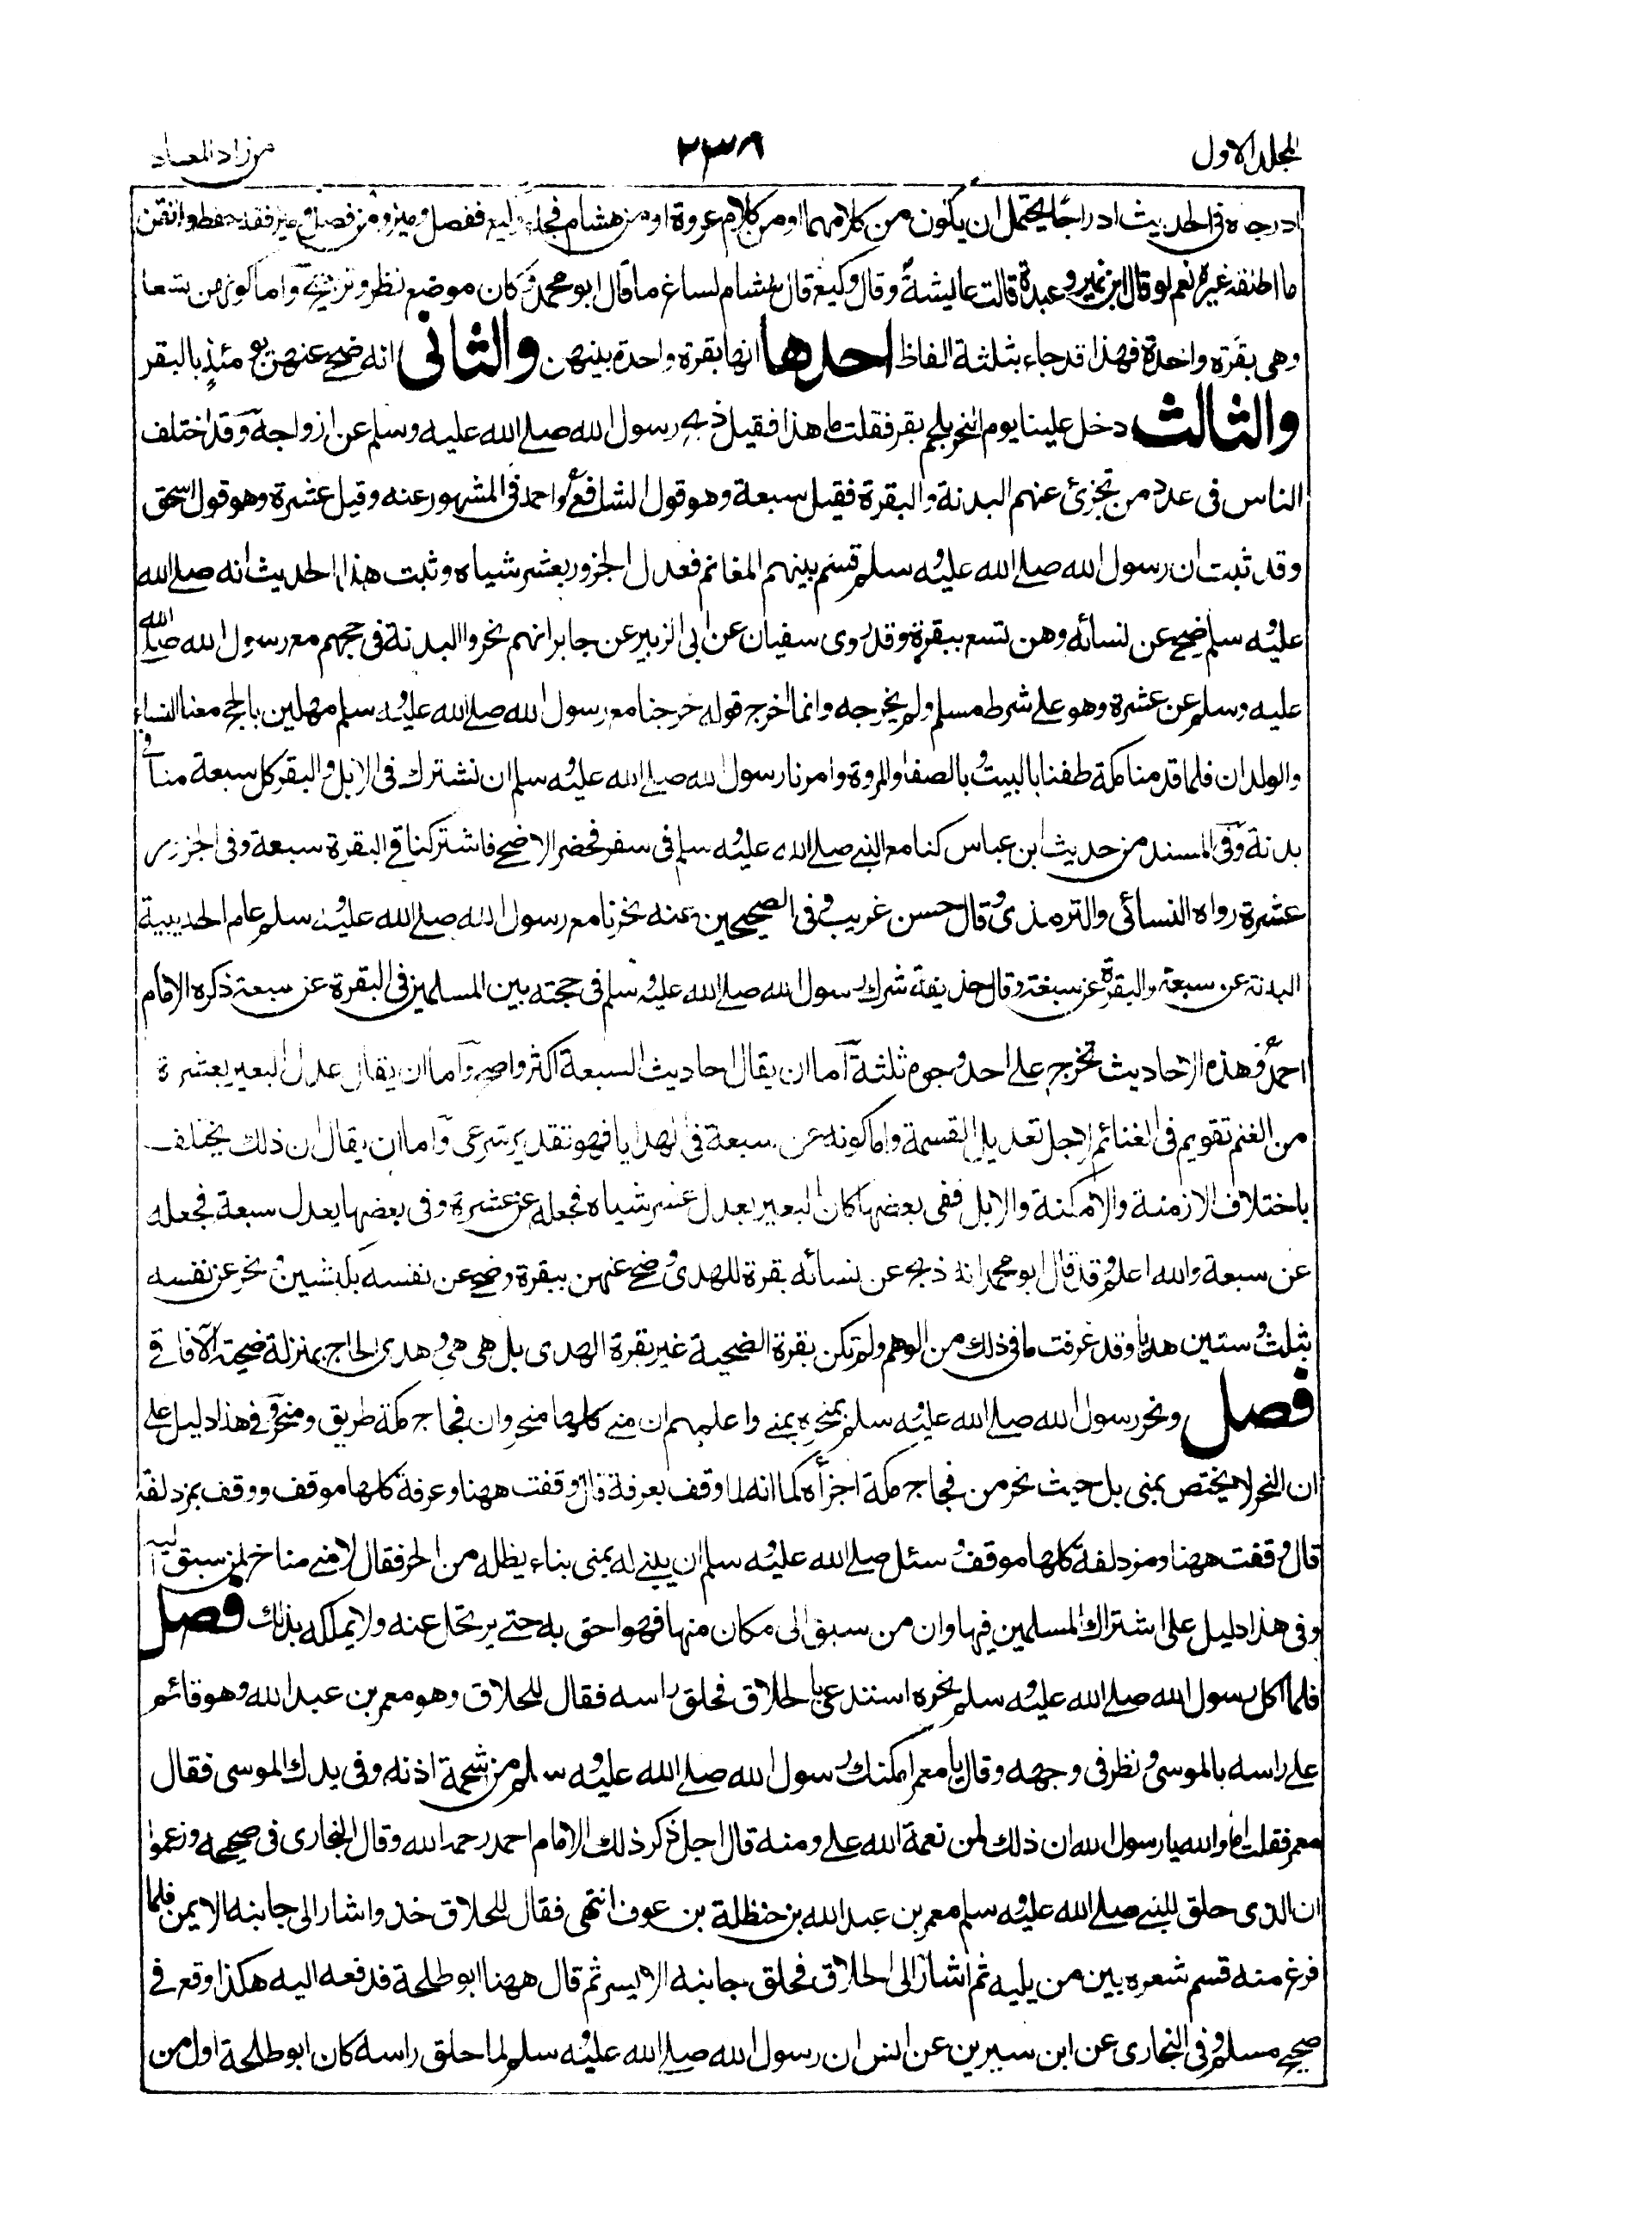 المجلد الاول ٢٣٨ من زاد المعاد
ادرجاه فى الحديث ادراجا يحتمل ان يكون من كلامهما او من كلام عروة او من هشام فجاء وكيع ففصل وميز ومن فصل وميز فقد حفظ واتقن
ما اطلقه غيره نعم لو قال ابن نمير وعبدة قالت عايشة وقال وكيع قال هشام لساغ ما قال ابو محمد وكان موضع نظر وترجيح واما كونهن تسعا
وهى بقرة واحدة فهذا قد جاء بثلثة الفاظ احدها انها بقرة واحدة بينهن والثانى انه ضحى عنهن يومئذ بالبقر
والثالث دخل علينا يوم النحر بلحم بقر فقلت ما هذا فقيل ذبح رسول الله صلى الله عليه وسلم عن ازواجه وقد اختلف
الناس فى عدد من تجزئ عنهم البدنة والبقرة فقيل سبعة وهو قول الشافعى واحمد فى المشهور عنه وقيل عشرة وهو قول اسحق
وقد ثبت ان رسول الله صلى الله عليه وسلم قسم بينهم المغانم فعدل الجزور بعشر شياه وثبت هذا الحديث انه صلى الله
عليه وسلم ضحى عن نسائه وهن تسع ببقرة وقد روى سفيان عن ابى الزبير عن جابر انهم نحروا البدنة فى حجهم مع رسول الله صلى الله
عليه وسلم عن عشرة وهو على شرط مسلم ولم يخرجه وانما اخرج قوله خرجنا مع رسول الله صلى الله عليه وسلم مهلين بالحج معنا النساء
والولدان فلما قدمنا مكة طفنا بالبيت وبالصفا والمروة وامرنا رسول الله صلى الله عليه وسلم ان نشترك فى الابل والبقر كل سبعة منا فى
بدنة وفى المسند من حديث ابن عباس كنا مع النبى صلى الله عليه وسلم فى سفر فحضر الاضحى فاشتركنا فى البقرة سبعة وفى الجزور
عشرة رواه النسائى والترمذى وقال حسن غريب وفى الصحيحين عنه نحرنا مع رسول الله صلى الله عليه وسلم عام الحديبية
البدنة عن سبعة والبقرة عن سبعة وقال حذيفة شرك رسول الله صلى الله عليه وسلم فى حجته بين المسلمين فى البقرة عن سبعة ذكره الامام
احمد وهذه الاحاديث تخرج على احد وجوه ثلثة اما ان يقال احاديث السبعة اكثر واصح واما ان يقال عدل البعير بعشرة
من الغنم تقويم فى الغنائم لاجل تعديل القسمة واما كونه عن سبعة فى الهدايا فهو تقدير شرعى واما ان يقال ان ذلك يختلف
باختلاف الازمنة والامكنة والابل ففى بعضها كان البعير يعدل عشر شياه فجعله عن عشرة وفى بعضها يعدل سبعة فجعله
عن سبعة والله اعلم وقد قال ابو محمد انه ذبح عن نسائه بقرة للهدى وضحى عنهن ببقرة وضحى عن نفسه بكبشين ونحر عن نفسه
بثلث وستين هديا وقد عرفت ما فى ذلك من الوهم ولم تكن بقرة الضحية غير بقرة الهدى بل هى هى وهدى الحاج بمنزلة ضحية الآفاقى
فصل ونحر رسول الله صلى الله عليه وسلم بمنحره بمنى واعلمهم ان منى كلها منحر وان فجاج مكة طريق ومنحر وفى هذا دليل على
ان النحر لا يختص بمنى بل حيث نحر من فجاج مكة اجزأه كما انه لما وقف بعرفة قال وقفت ههنا وعرفة كلها موقف ووقف بمزدلفة
قال وقفت ههنا ومزدلفة كلها موقف وسئل صلى الله عليه وسلم ان يبنى له بمنى بناء يظله من الحر فقال لا منى مناخ لمن سبق اليه
وفى هذا دليل على اشتراك المسلمين فيها وان من سبق الى مكان منها فهو احق به حتى يرتحل عنه ولا يملكه بذلك فصل
فلما اكمل رسول الله صلى الله عليه وسلم نحره استدعى بالحلاق فحلق راسه فقال للحلاق وهو معمر بن عبد الله وهو قائم
على راسه بالموسى ونظر فى وجهه وقال يا معمر امكنك رسول الله صلى الله عليه وسلم من شحمة اذنه وفى يدك الموسى فقال
معمر فقلت اما والله يا رسول الله ان ذلك لمن نعمة الله على ومنه قال اجل ذكر ذلك الامام احمد رحمه الله وقال البخارى فى صحيحه وزعموا
ان الذى حلق للنبى صلى الله عليه وسلم معمر بن عبد الله بن حنظلة بن عوف انتهى فقال للحلاق خذ واشار الى جانبه الايمن فلما
فرغ منه قسم شعره بين من يليه ثم اشار الى الحلاق فحلق جانبه الايسر ثم قال ههنا ابو طلحة فدفعه اليه هكذا وقع فى
صحيح مسلم وفى البخارى عن ابن سيرين عن انس ان رسول الله صلى الله عليه وسلم لما حلق راسه كان ابو طلحة اول من